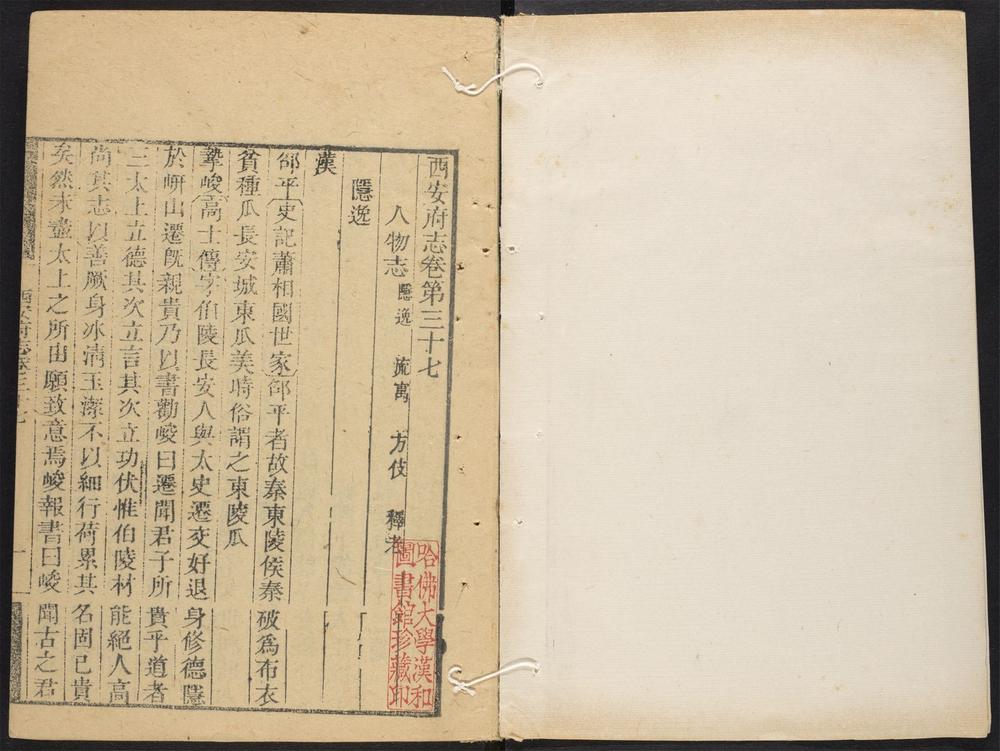 西安府志卷第三十七
人物志 隱逸 流寓 方伎 釋老
隱逸
漢
邵平史記蕭相國世家邵平者故秦東陵侯秦破爲布衣
貧種瓜長安城東瓜美時俗謂之東陵瓜
摯峻高士傳字伯陵長安人與太史遷交好退身修德隱
於岍山遷旣親貴乃以書勸峻曰遷聞君子所貴乎道者
三太上立德其次立言其次立功伏惟伯陵材能絕人高
尚其志以善厥身冰淸玉潔不以細行荷累其名固已貴
矣然未盡太上之所由願致意焉峻報書曰峻聞古之君
西安府志卷三十七
一
哈佛大學漢和
圖書館珍藏印